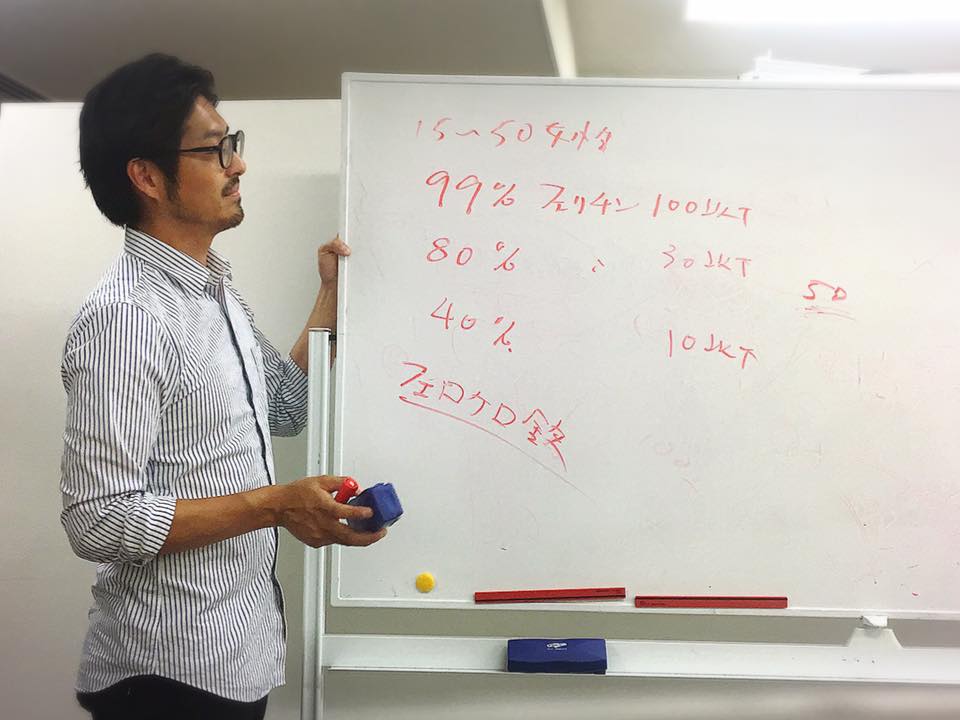 15〜50
99% フェリチン 100以下
80% 〃 30以下
50
40% 10以下
フェロケロ鉄